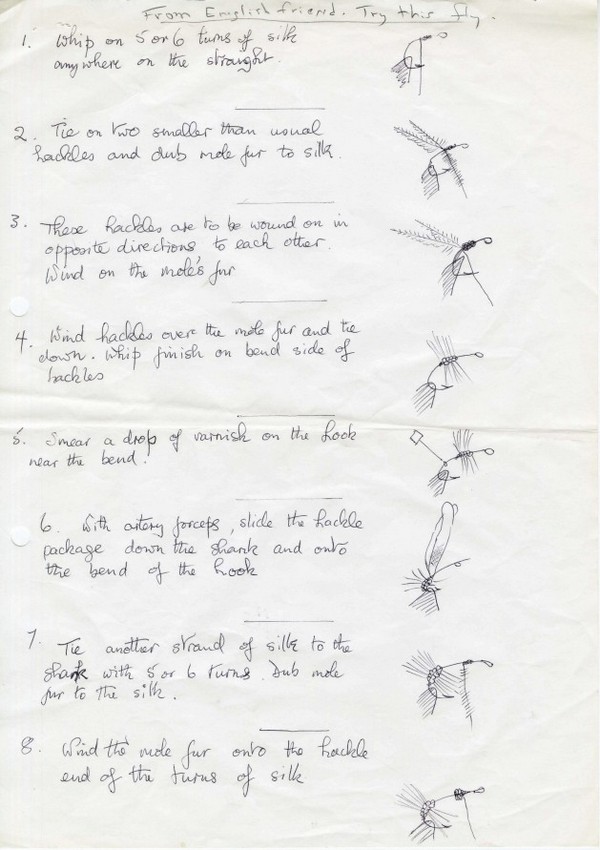 From English friend. Try this fly.
1. Whip on 5 or 6 turns of silk
anywhere on the straight.
2. Tie on two smaller than usual
hackles and dub mole fur to silk.
3. These hackles are to be wound on in
opposite directions to each other.
Wind on the mole's fur
4. Wind hackles over the mole fur and tie
down. Whip finish on bend side of
hackles
5. Smear a drop of varnish on the hook
near the bend.
6. With artery forceps, slide the hackle
package down the shank and onto
the bend of the hook
7. Tie another strand of silk to the
shank with 5 or 6 turns. Dub mole
fur to the silk.
8. Wind the mole fur onto the hackle
end of the turns of silk